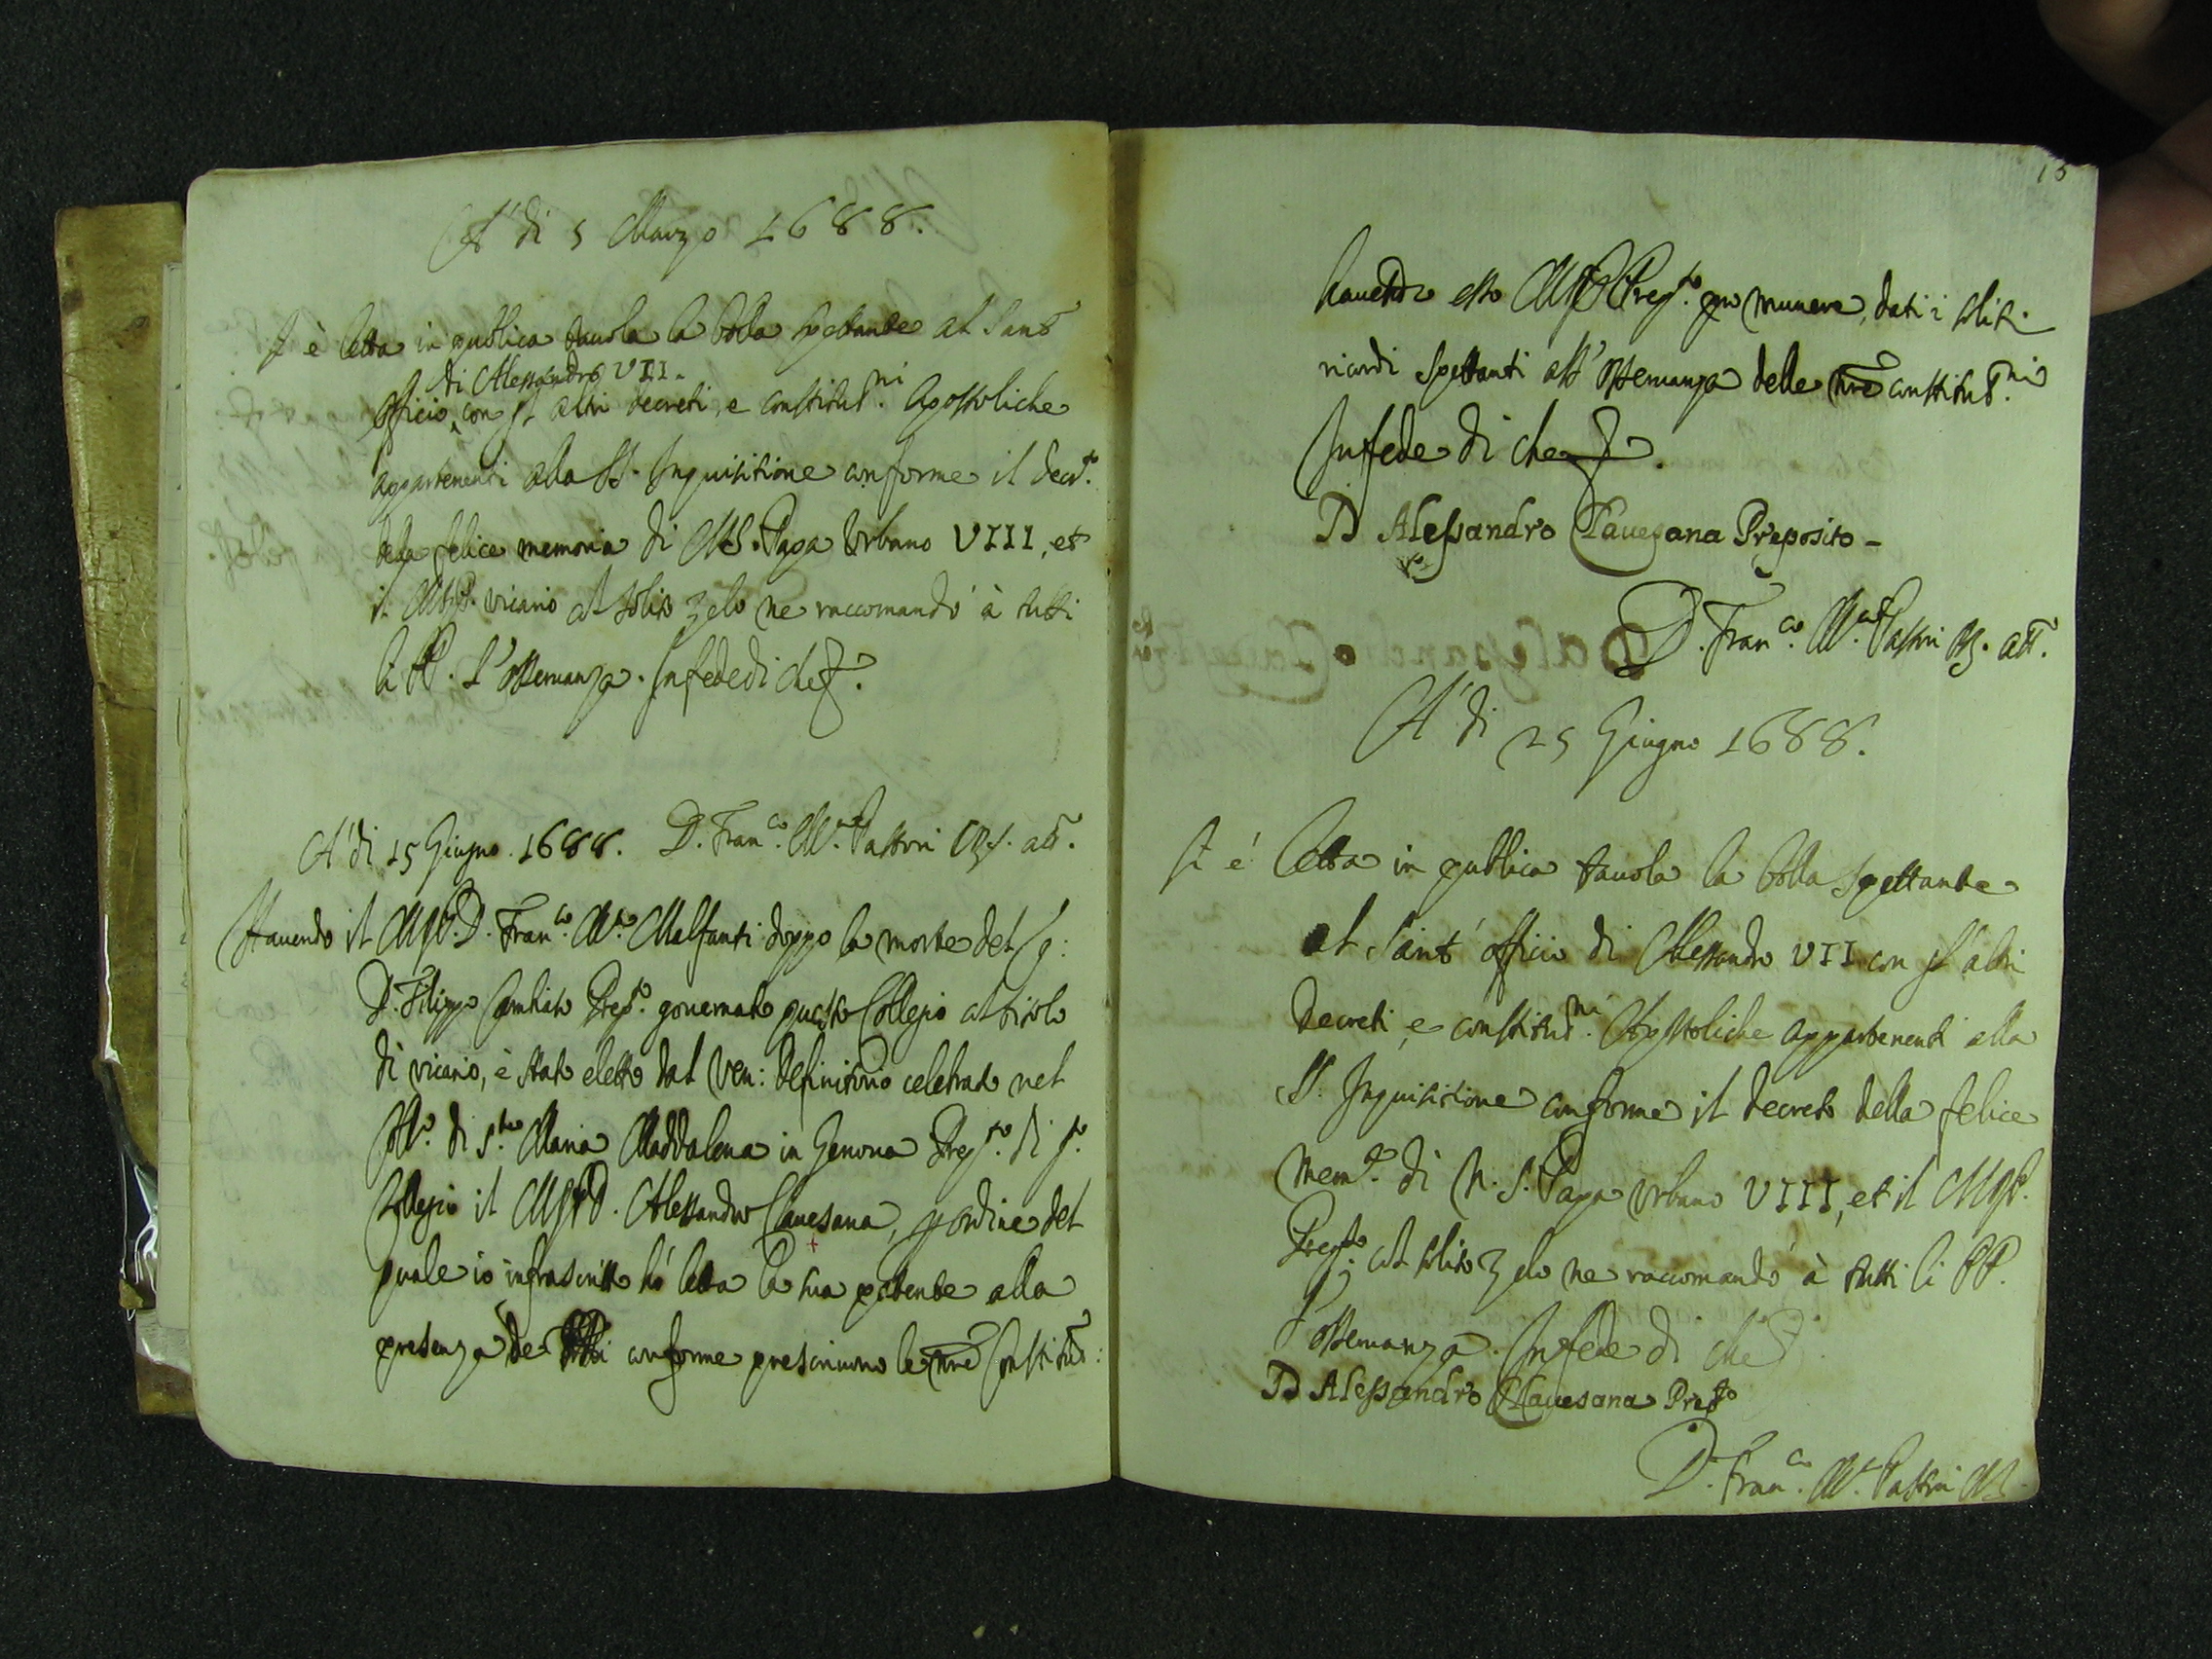 A' di 5 Marzo 1688.
Si è letta in publica tauola la bolla spettante al Sant'
di Alessandro VII.
officio, con gl'altri decreti, e constitut.ni Apostoliche
appartenenti alla SS. Inquisitione conforme il decr.to
dela felice memoria di N.S. Papa Vrbano VIII, et
il M.R.P. vicario col solito zelo ne raccomandò à tutti
li PP. l'osseruanza. In fede di che
A' di 15 Giugno 1688. D. Fran.co M.a Pastori C.R.S. att.
Hauendo il M.R.P. D. Fran.co M.a Malfanti doppo la morte del
D. Filippo Prep.to gouernato questo Collegio col titolo
di vicario, è stato eletto dal Ven: Definitorio celebrato nel
Coll.o di S.ta Maria Maddalena in Genoua Prep.to di q.to
Collegio il M.R.P.D. Alessandro Clauesana, p ordine del
quale io infrascritto hò letta la sua patente alla
presenza de conforme prescriuono le nre Constitut:
15
hauendo esso M.R.P. Prep.to pro munere, dati i soliti
ricordi spettanti all'osseruanza delle nre constitut.ni
In fede di che
D Alessandro Clauesana Preposito -
D. Fran.co M.a Pastori att.
A' di 25 Giugno 1688.
Si é letta in publica tauola la bolla spettante
al Sant' officio di Alessandro VII con gl'altri
decreti, e constitut.ni Apostoliche appartenenti alla
SS. Inquisitione conforme il decreto della felice
mem.a di N.S. Papa Vrbano VIII, et il M.R.P.
Prep.to col solito zelo ne raccomandò à tutti li PP.
l'osseruanza. In fede di che
D Alessandro Clauesana Prep.to
D. Fran.co M.a Pastori